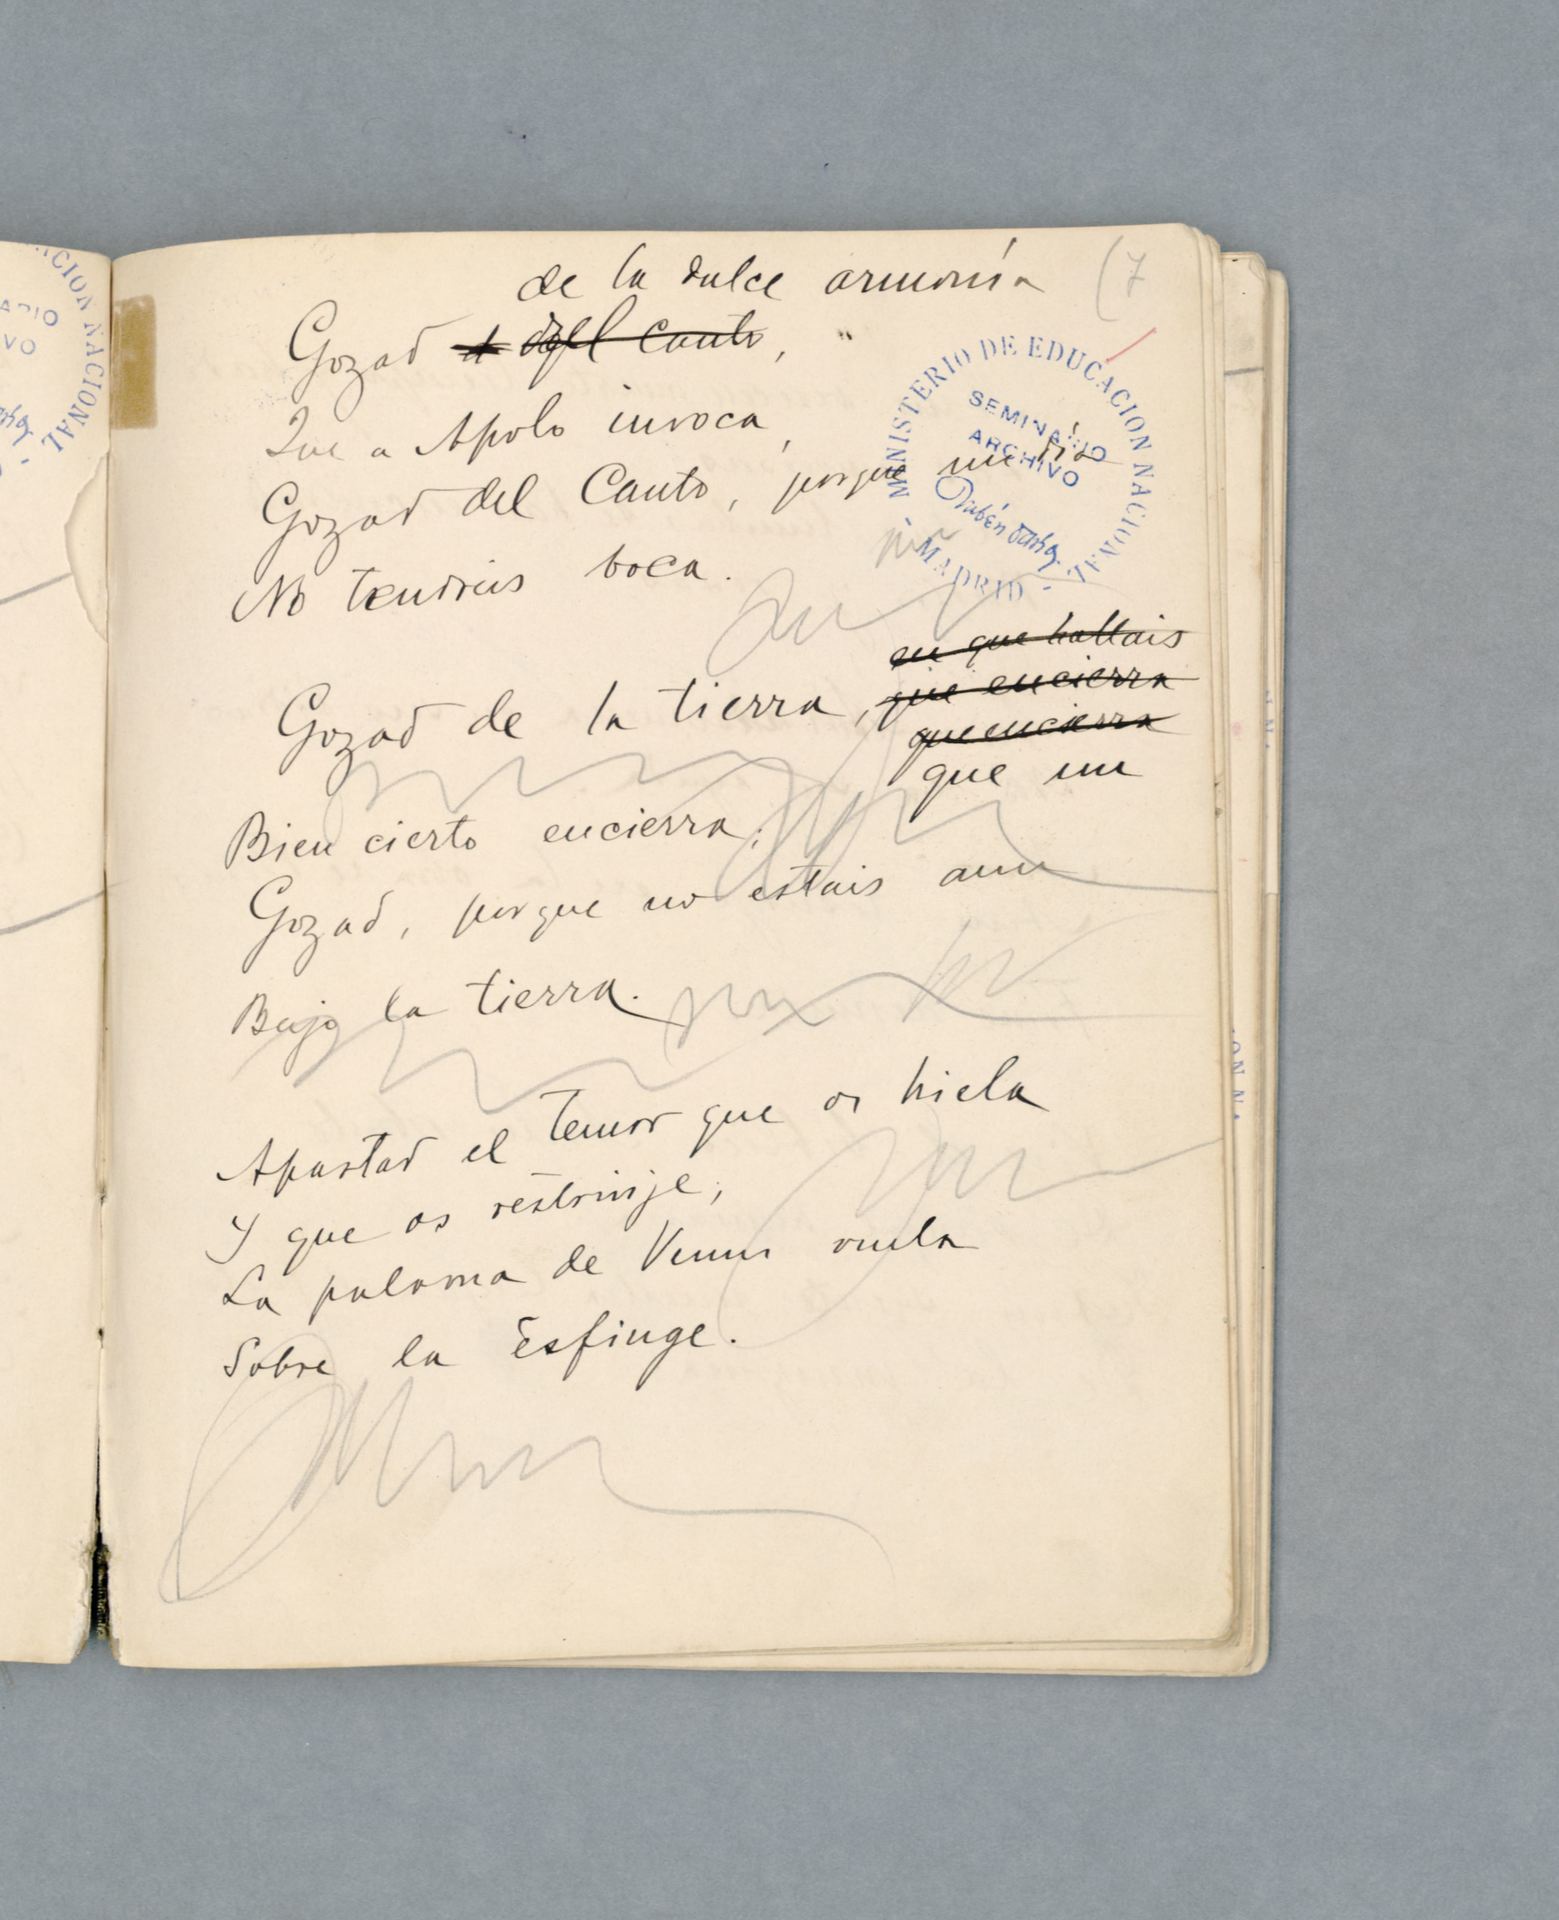 (7
de la dulce armonía
Gozad del Canto,
Que a Apolo invoca,
Gozad del Canto, porque un día
No tendréis boca.
en que hallais
Gozad de la tierra, que encierra
que encierra
que un
Bien cierto encierra;
Gozad, porque no estais aun
Bajo la tierra.
Apartad el temor que os hiela
Y que os restrinje;
La paloma de Venus vuela
Sobre la Esfinge.
MINISTERIO DE EDUCACION NACIONAL
SEMINARIO
ARCHIVO
Rubén Darío
- MADRID -
CION NACIONAL